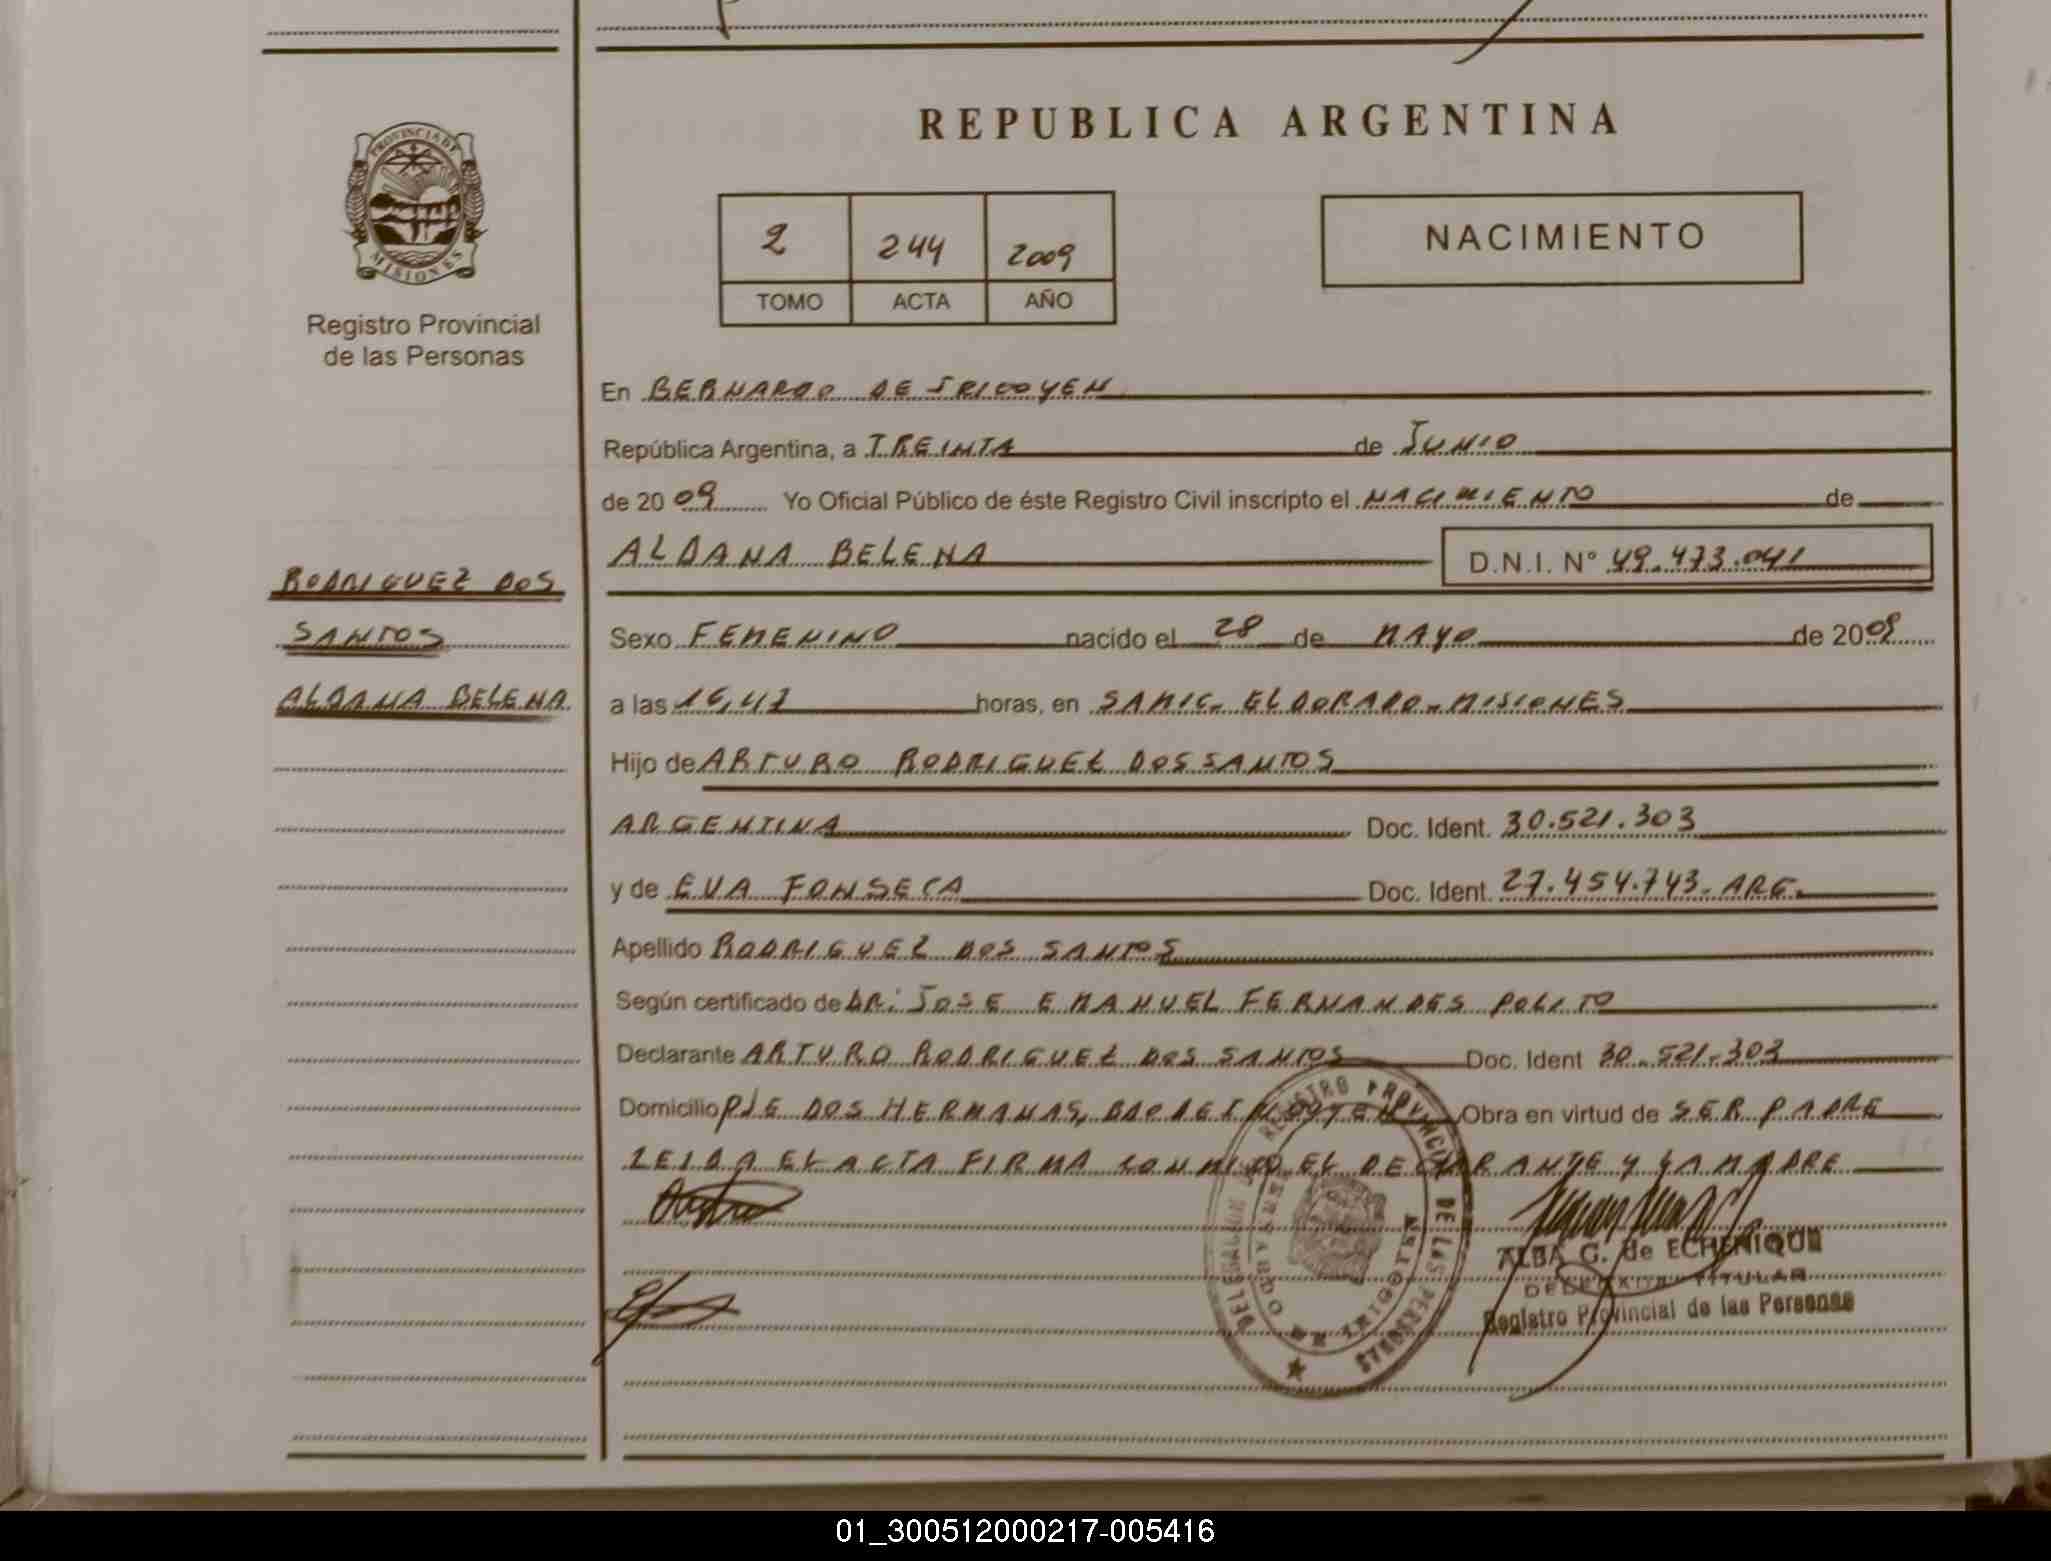 REPUBLICA ARGENTINA
PROVINCIA DE
MISIONES
Registro Provincial
de las Personas
2 244 2009
TOMO ACTA AÑO
NACIMIENTO
En BERNARDO DE IRIGOYEN
República Argentina, a TREINTA de JUNIO
de 2009 Yo Oficial Público de éste Registro Civil inscripto el NACIMIENTO de
ALDANA BELENA D.N.I. N° 49.473.041
RODRIGUEZ DOS
SANTOS
ALDANA BELENA
Sexo FEMENINO nacido el 28 de MAYO de 2009
a las 16,47 horas, en SAMIC- ELDORADO-MISIONES
Hijo de ARTURO RODRIGUEZ DOS SANTOS
ARGENTINA Doc. Ident. 30.521.303
y de EVA FONSECA Doc. Ident. 27.454.743. ARG.
Apellido RODRIGUEZ DOS SANTOS
Según certificado de DR: JOSE EMANUEL FERNANDES POLITO
Declarante ARTURO RODRIGUEZ DOS SANTOS Doc. Ident 30.521.303
Domicilio PJE DOS HERMANAS, Obra en virtud de SER PADRE
LEIDA EL ACTA FIRMA CONMIGO EL DECLARANTE Y LA MADRE
REGISTRO PROVINCIAL DE LAS PERSONAS
BERNARDO DE IRIGOYEN
ALBA G. de ECHENIQUE
DELEGADA TITULAR
Registro Provincial de las Personas
01_300512000217-005416